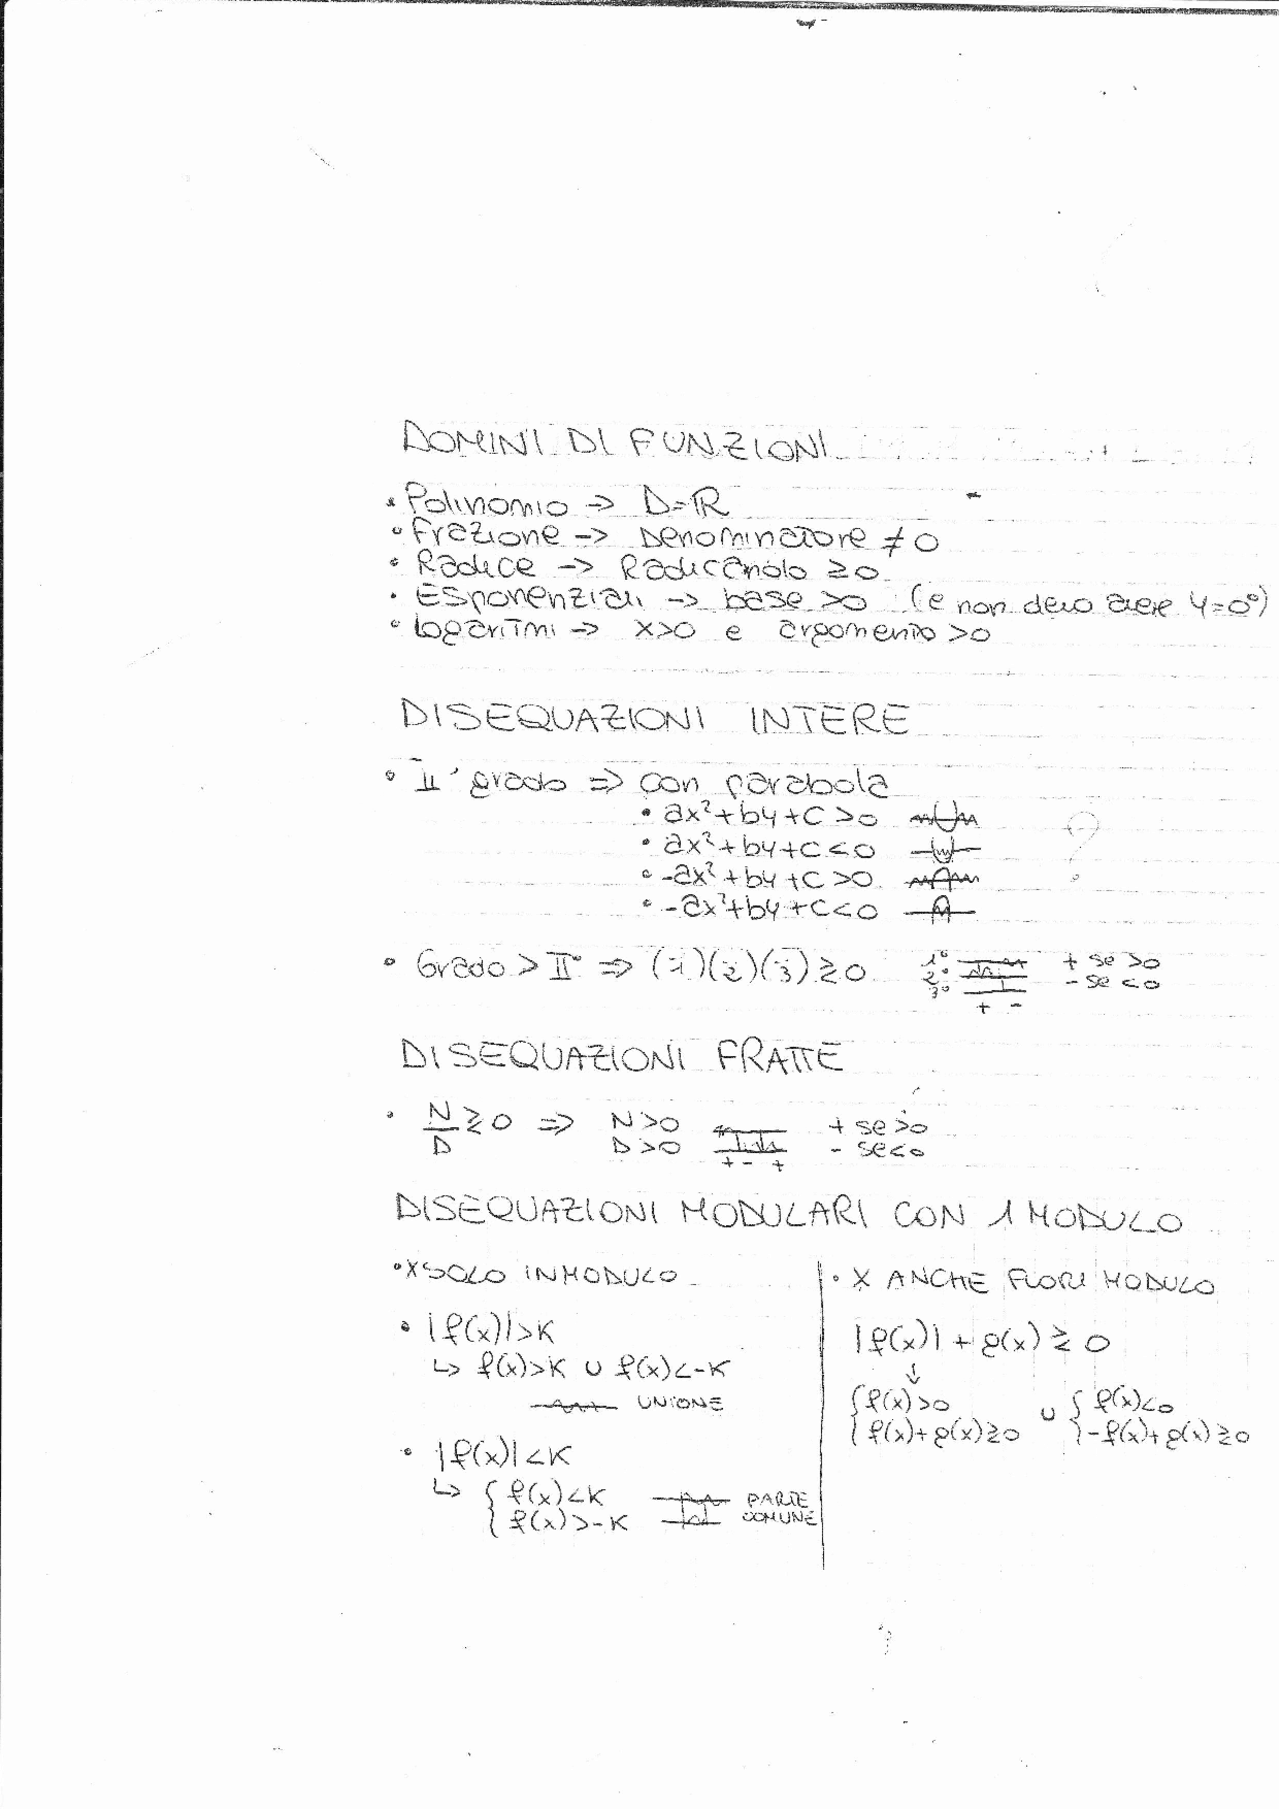 DOMINI DI FUNZIONI
• Polinomio → D=ℝ
• Frazione → Denominatore ≠ 0
• Radice → Radicando ≥0
• Esponenziali → base >0 (e non devo avere y=0°)
• logaritmi → x>0 e argomento >0
DISEQUAZIONI INTERE
• II° grado ⇒ con parabola
• ax²+by+c>0
• ax²+by+c<0
• -ax²+by+c>0
• -ax²+by+c<0
?
• Grado > II° ⇒ (1)(2)(3) ≥0 1° 2° 3° + - + se >0 - se <0
DISEQUAZIONI FRATTE
• N/D ≥0 ⇒ N>0 + se >0
D>0 - se<0
+ - +
DISEQUAZIONI MODULARI CON 1 MODULO
• X SOLO IN MODULO
• |f(x)|>K
↳ f(x)>K ∪ f(x)<-K
UNIONE
• |f(x)|<K
↳ { f(x)<K PARTE
{ f(x)>-K COMUNE
• X ANCHE FUORI MODULO
|f(x)| + g(x) ≥ 0
↓
{ f(x)>0 ∪ { f(x)<0
{ f(x)+g(x)≥0 { -f(x)+g(x)≥0